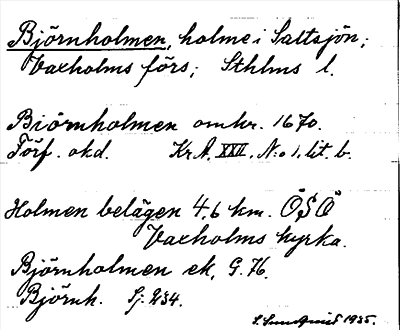 Björnholmen, holme i Saltsjön;
Vaxholms förs; Sthlms l.
Biörnholmen omkr. 1670.
Förf. okd. Kr A. XXII. N:o 1. lit. b.
Holmen belägen 4,6 km. ÖSÖ
Vaxholms kyrka.
Björnholmen ek. G. 76.
Björnh. Sj. 234.
S. Sundqvist 1935.